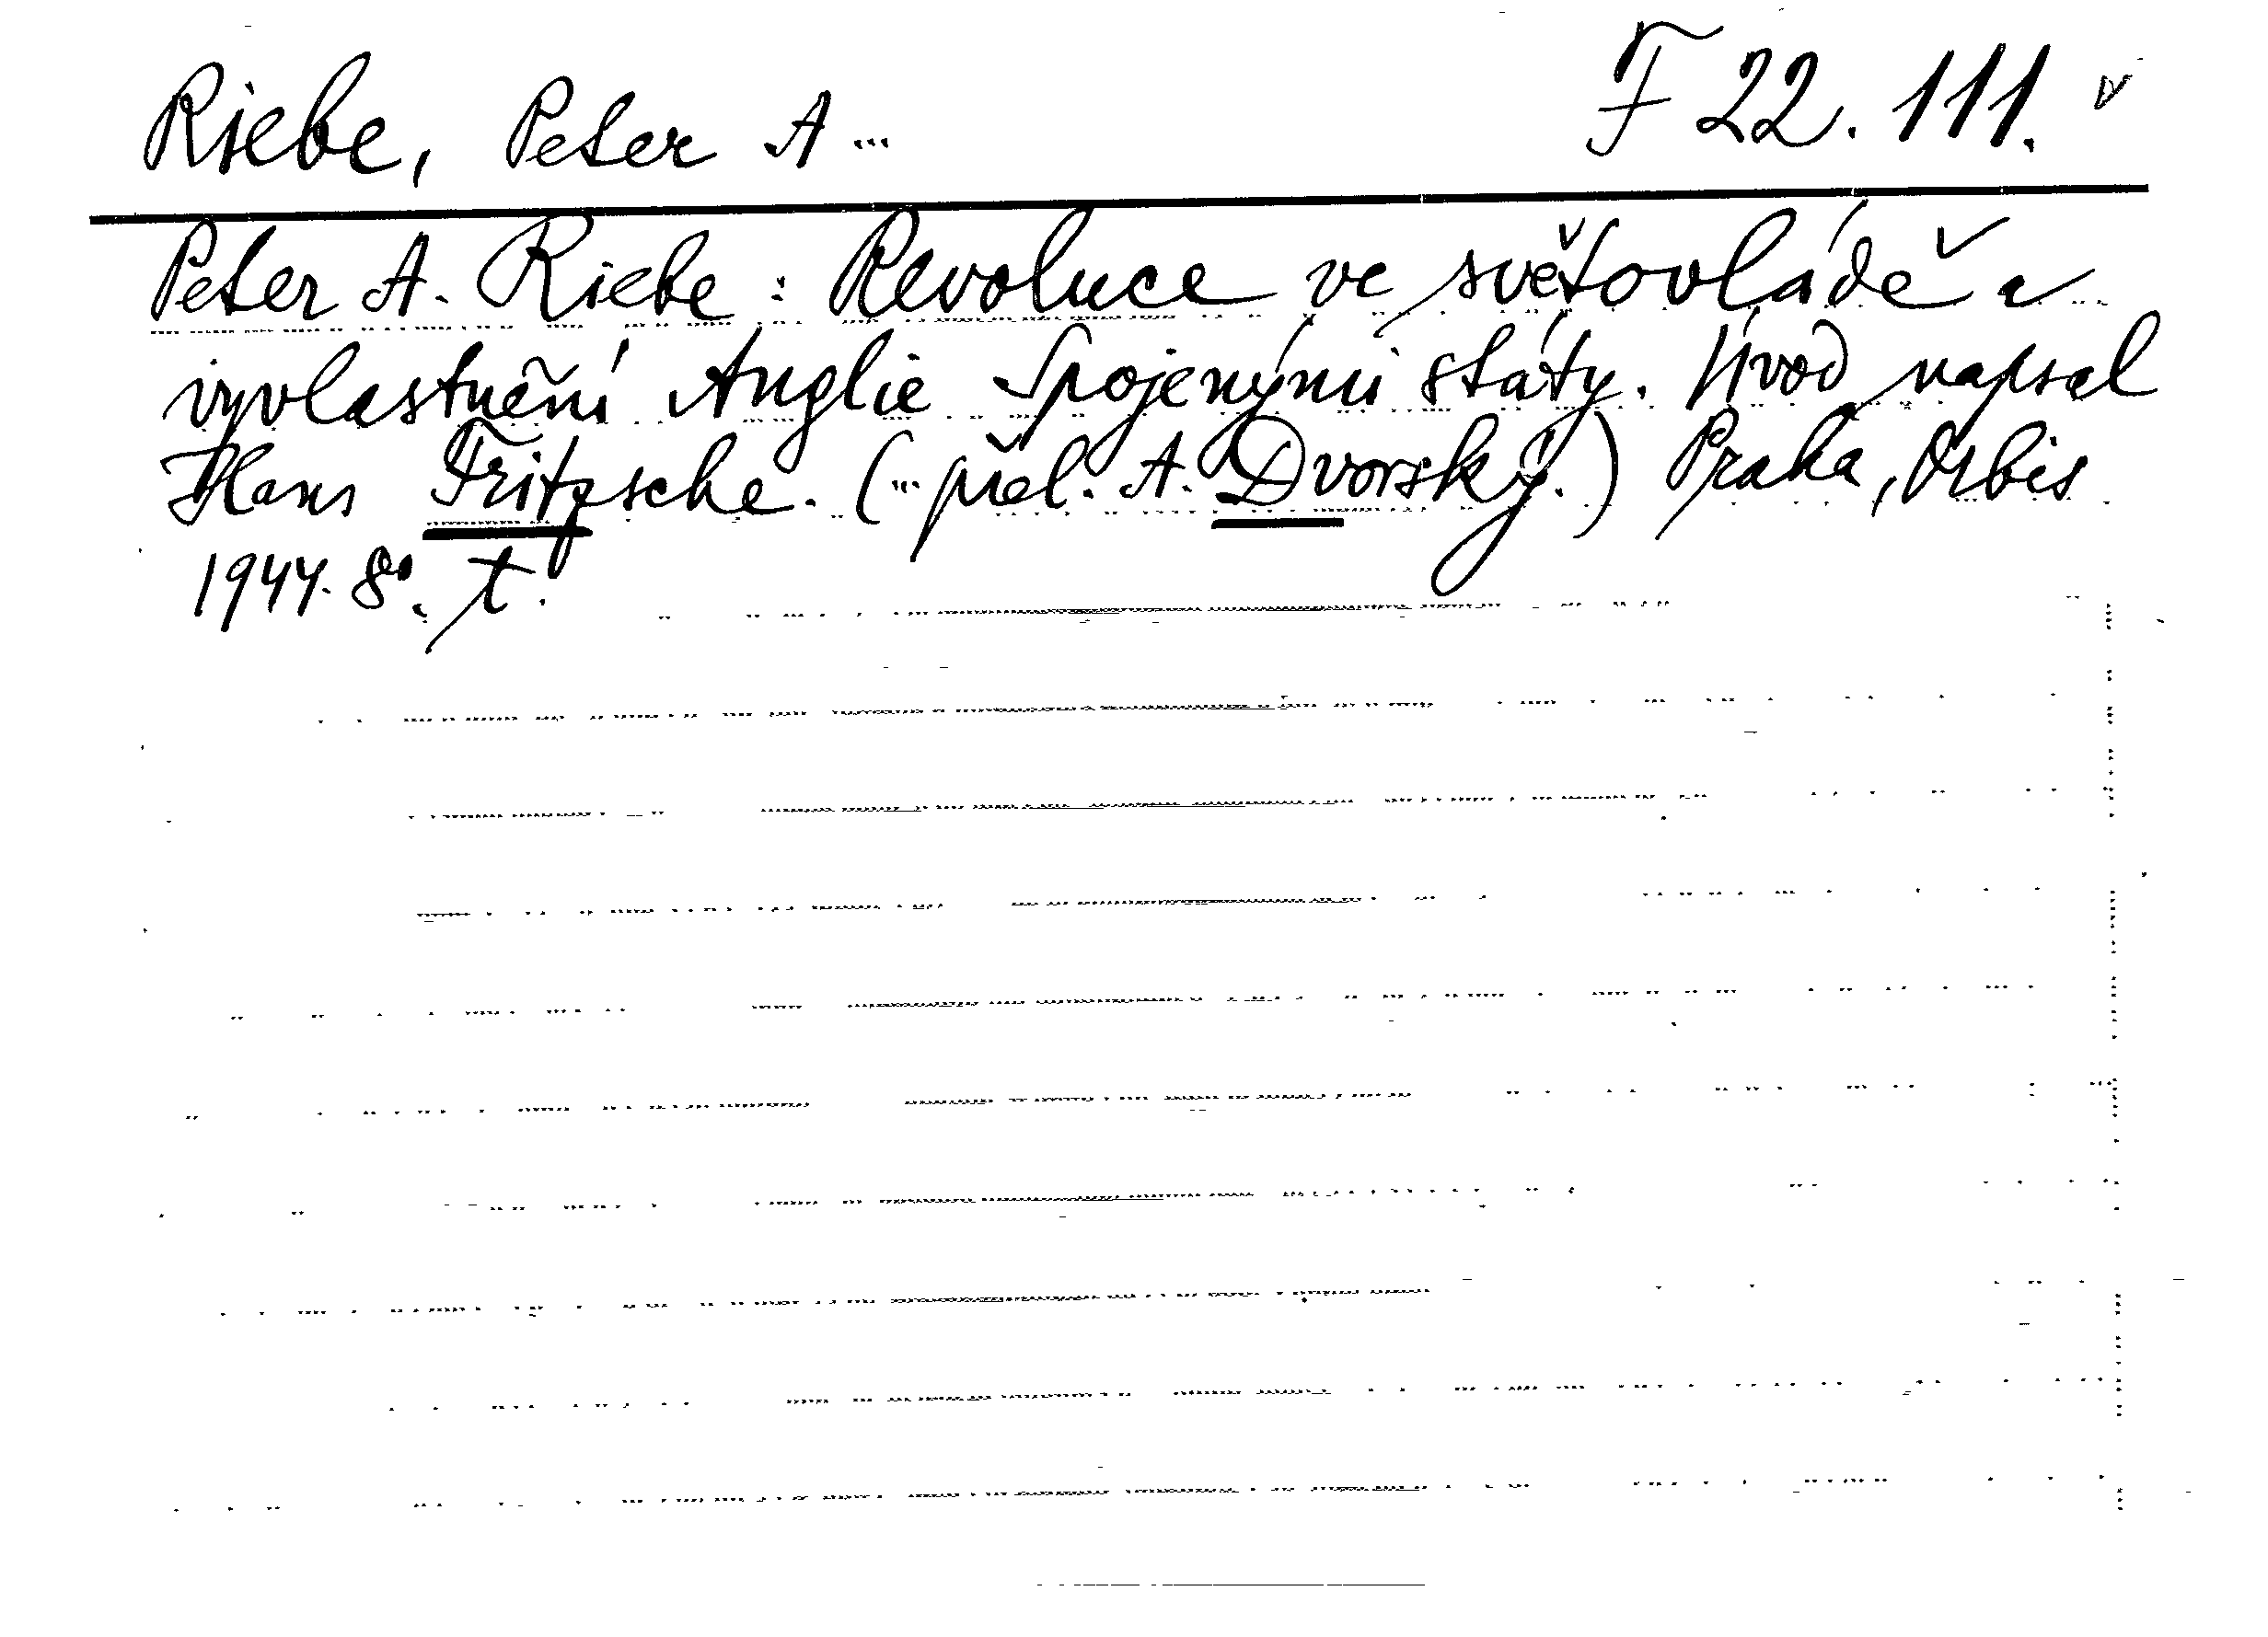 Riebe, Peter A... F 22.111. v
Peter A. Riebe: Revoluce ve světovládě a
vyvlastnění Anglie Spojenými státy. Úvod napsal
Hans Fritzsche. (... přel. A. Dvorský.) Praha, Orbis
1944. 8°. t.